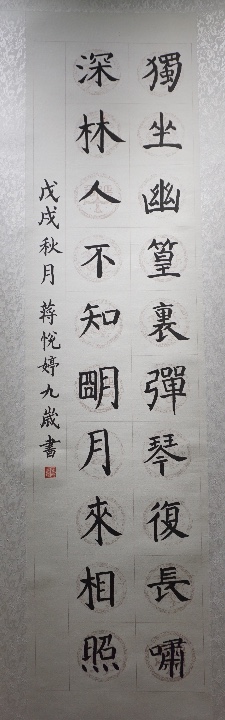 獨坐幽篁裏彈琴復長嘯
深林人不知明月來相照
戊戌秋月蒋悅婷九歲書